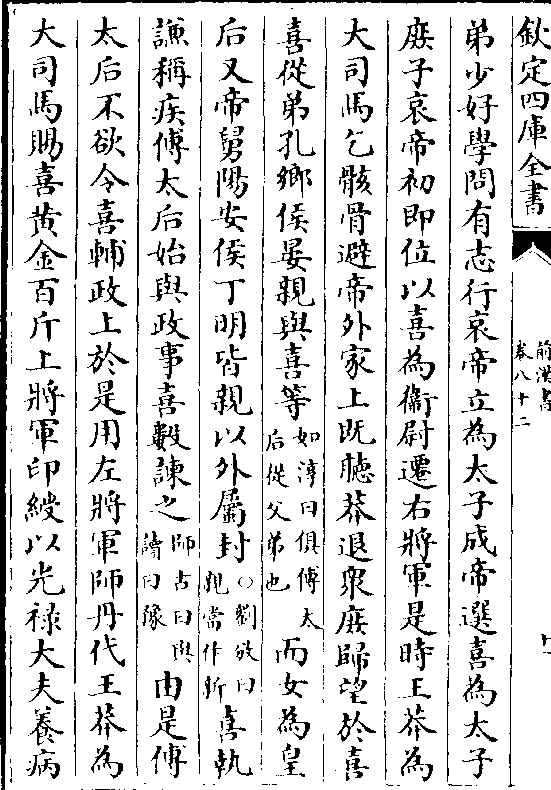 欽定四庫全書
前漢書
卷八十二
弟少好學問有志行哀帝立為太子成帝選喜為太子
庶子哀帝初即位以喜為衞尉遷右將軍是時王莽為
大司馬乞骸骨避帝外家上既聽莽退衆庶歸望於喜
喜從弟孔鄉侯晏親與喜等如淳曰俱傅太后從父弟也而女為皇
后又帝舅陽安侯丁明皆親以外屬封○劉攽曰親當作新喜執
謙稱疾傅太后始與政事喜數諫之師古曰與讀曰豫由是傅
太后不欲令喜輔政上於是用左將軍師丹代王莽為
大司馬賜喜黄金百斤上將軍印綬以光禄大夫養病